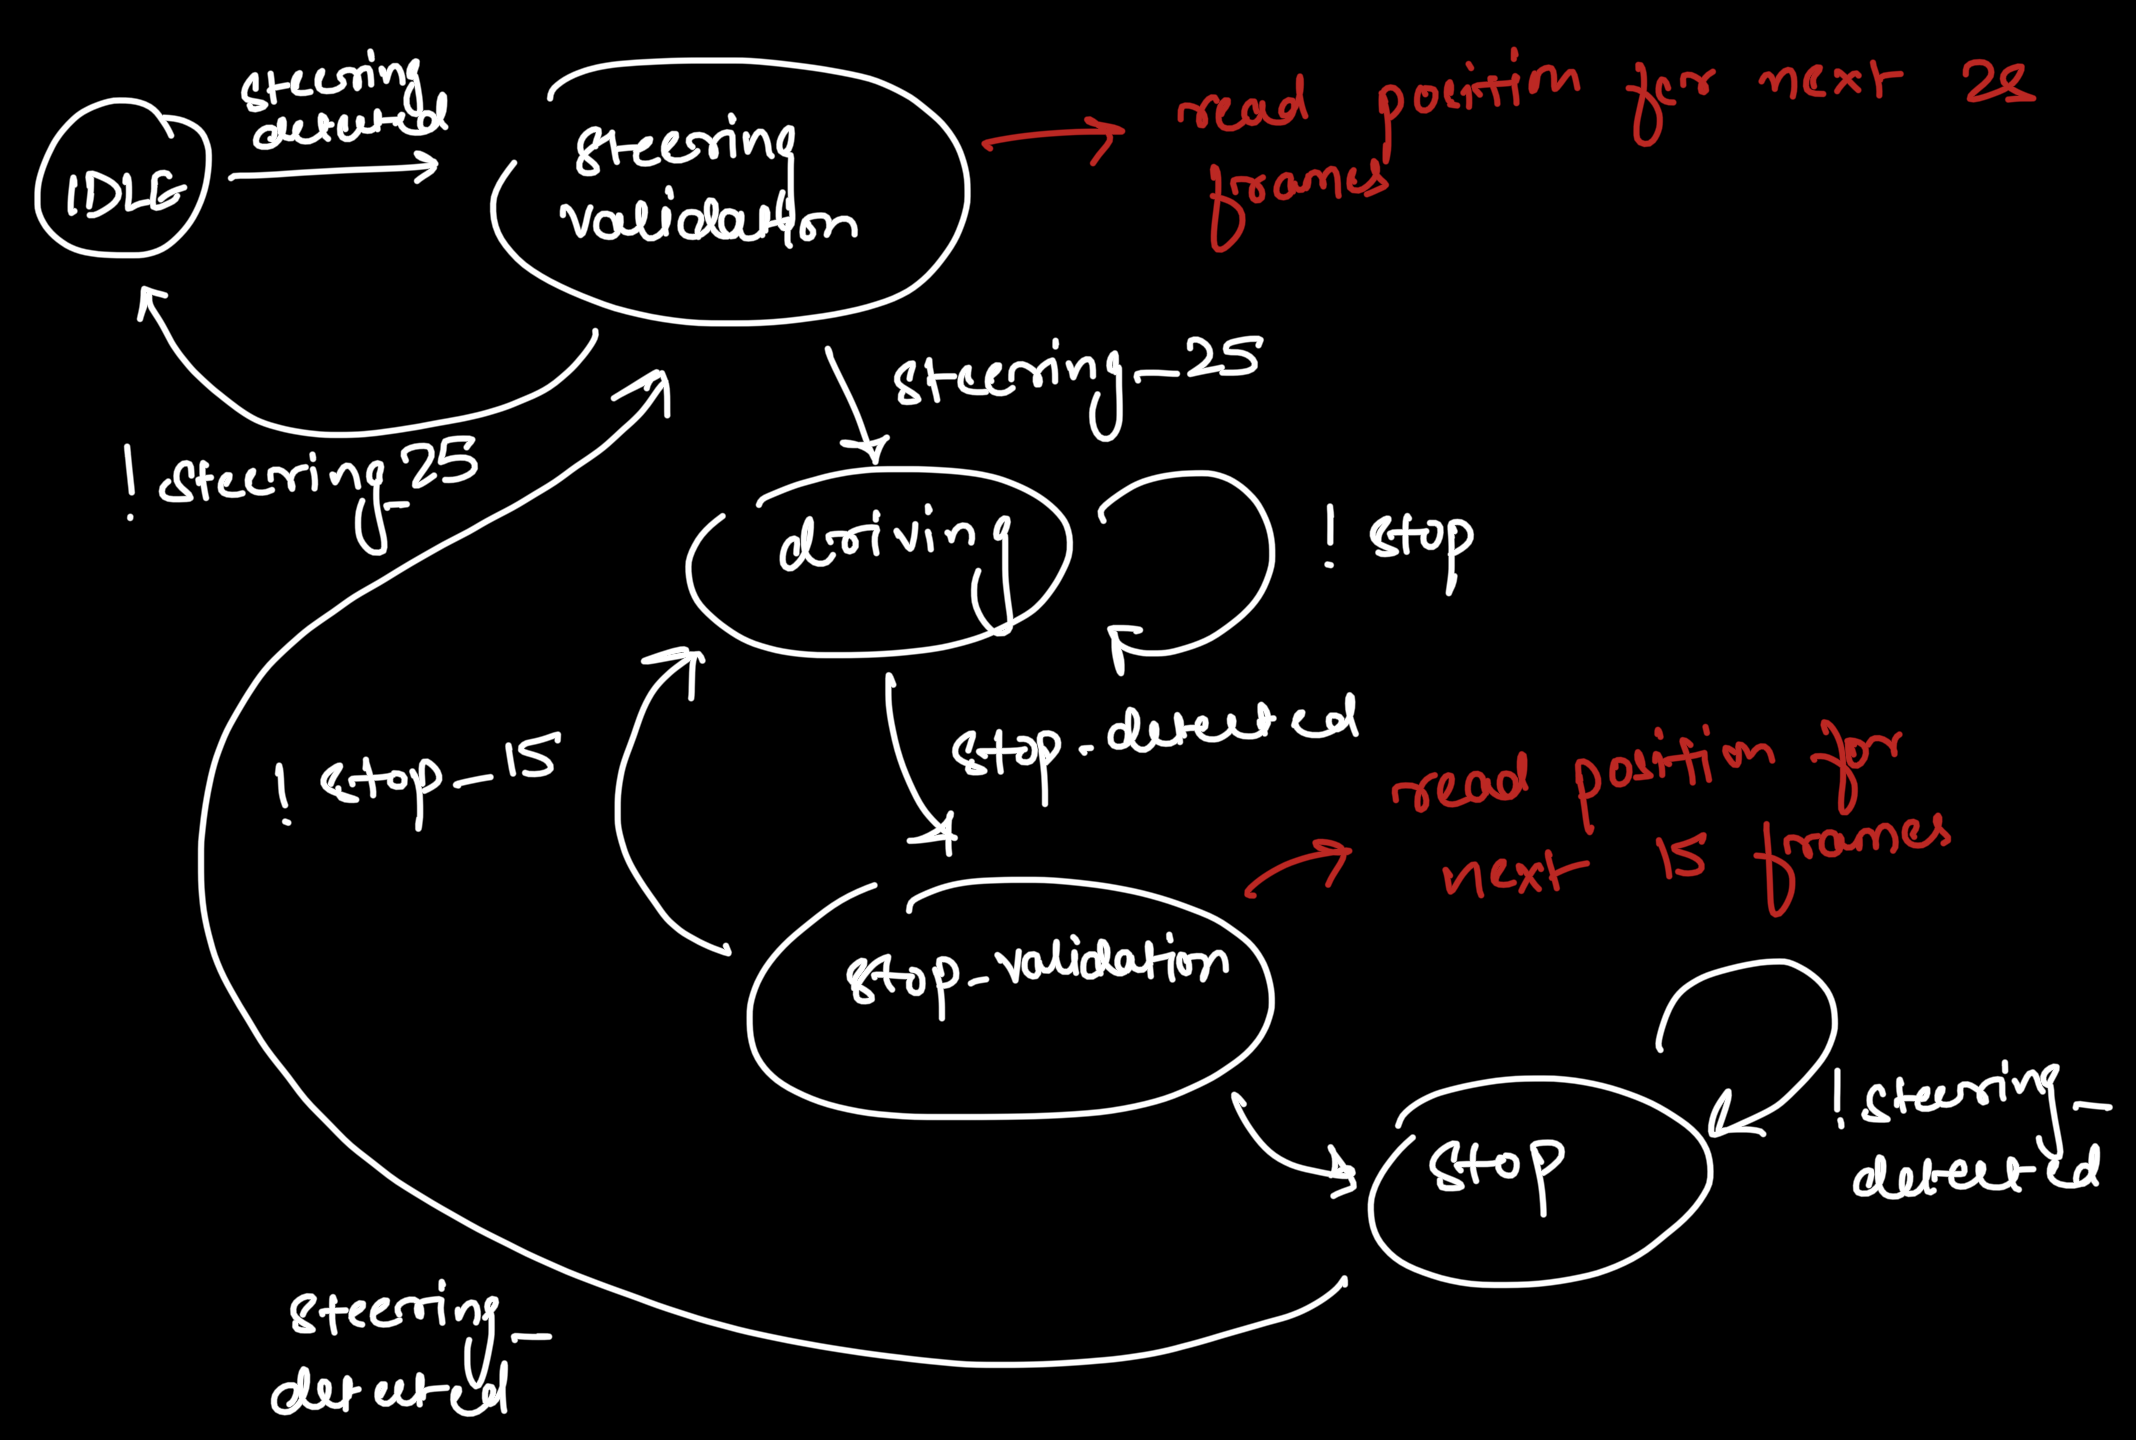 steering
detected
IDLE
steering
validation
read position for next 25
frames
steering_25
! steering_25
driving
! stop
stop-detected
! stop_15
read position for
next 15 frames
stop-validation
stop
! steering_
detected
steering_
detected